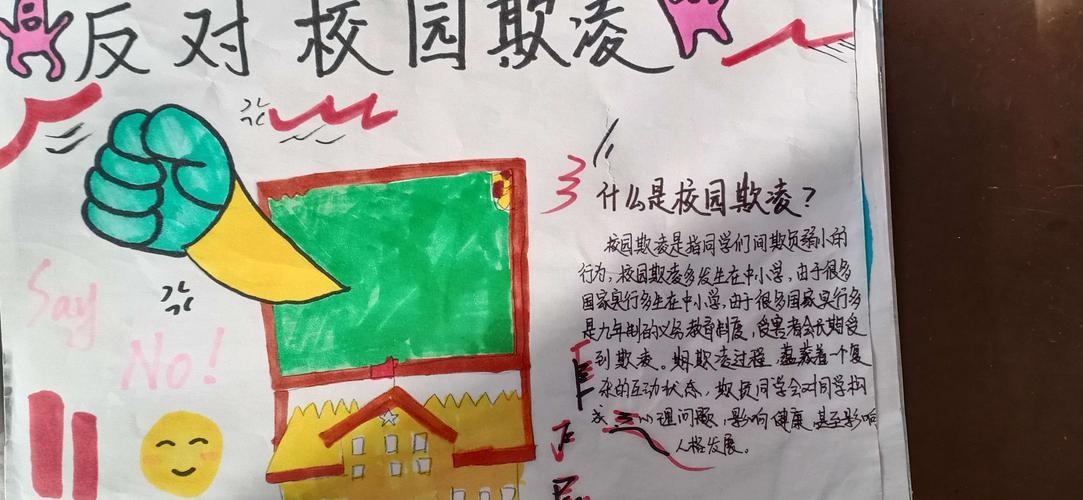 反对校园欺凌
什么是校园欺凌？
校园欺凌是指同学们间欺负弱小的
行为，校园欺凌多发生在中小学，由于很多
国家实行多生在中小学，由于很多国家实行多
是九年制的义务教育制度，受害者会长期受
到欺凌。期欺凌过程，蕴藏着一个复
杂的互动状态，欺负同学会对同学构
成心理问题，影响健康，甚至影响
人格发展。
Say
No!